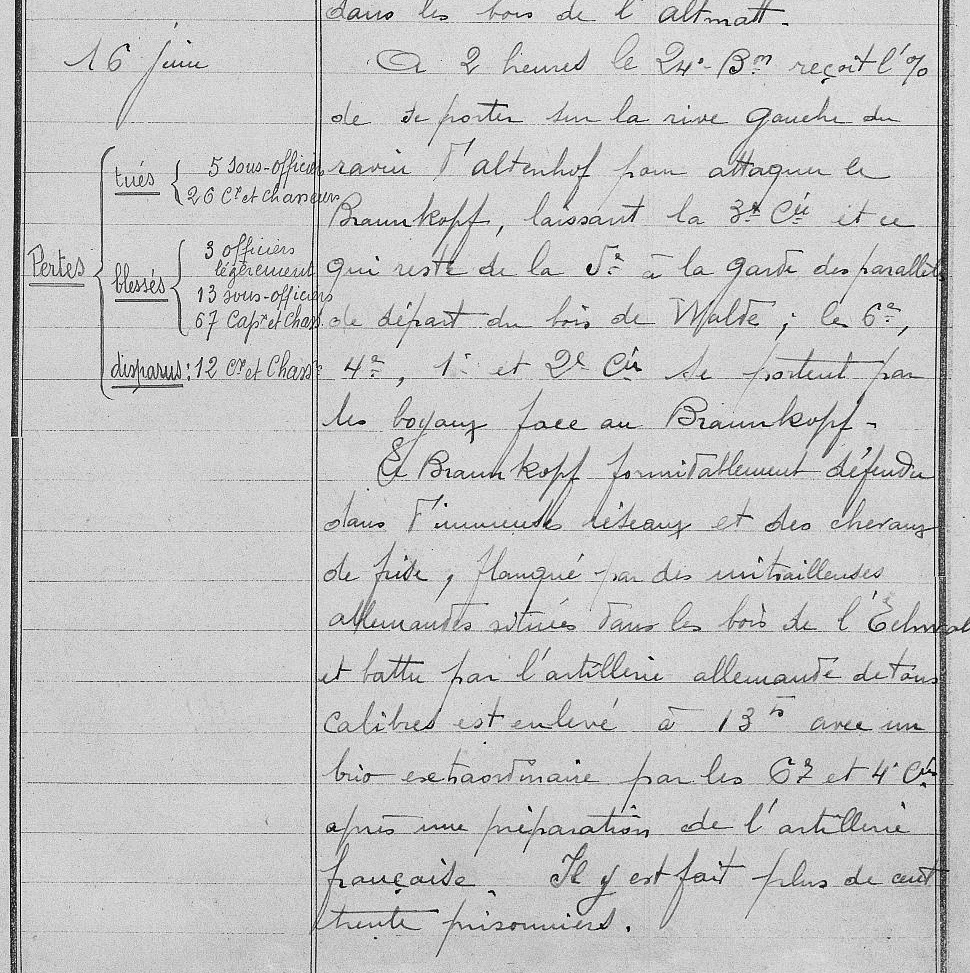 dans les bois de l'altmatt.
16 juin
A 2 heures le 24e Bon reçoit l'%
de se porter sur la rive gauche du
ravin d'altenhof pour attaquer le
Braunkopf, laissant la 3e Cie et ce
qui reste de la 5e à la garde des parallèles
de départ du bois de Walde ; les 6e,
4e, 1e et 2e Cie se portent par
les boyaux face au Braunkopf -
Le Braunkopf formidablement défendu
dans d'immenses réseaux et des chevaux
de frise, flanqué par des mitrailleuses
allemandes situées dans les bois de l'
et battu par l'artillerie allemande de tous
calibres est enlevé à 13h avec un
brio extraordinaire par les 6e et 4e Cies
après une préparation de l'artillerie
française. Il y est fait plus de cent
trente prisonniers.
Pertes
tués
5 sous-officiers
26 Cx et chasseurs
blessés
3 officiers
légèrement
13 sous-officiers
67 Capx et Chass.
disparus : 12 Cx et Chassrs